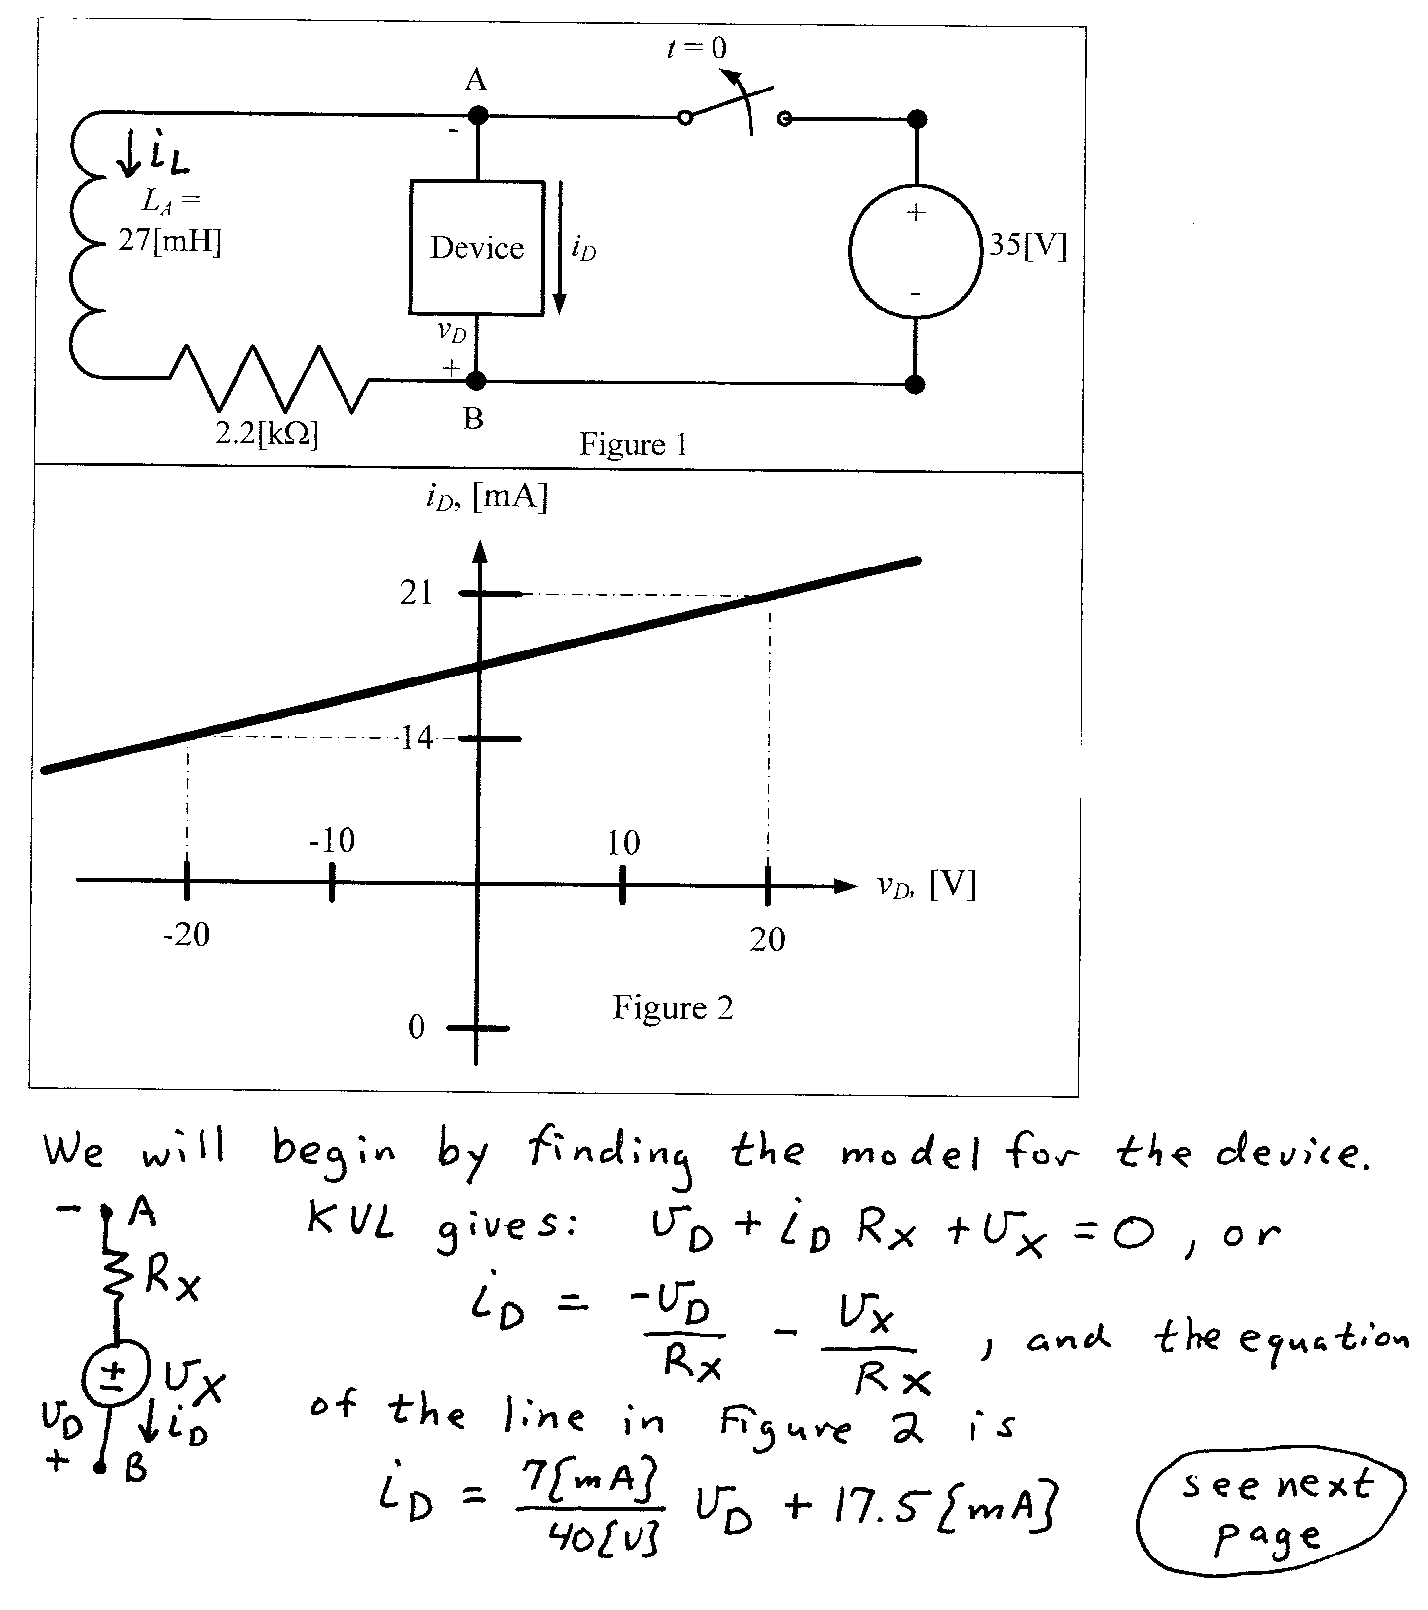 t = 0
A
-
iL
L_A =
27[mH]
Device
i_D
+
35[V]
-
v_D
+
B
2.2[kΩ]
Figure 1
i_D, [mA]
21
14
-10
10
v_D, [V]
-20
20
Figure 2
0
We will begin by finding the model for the device.
- A
R_X
KVL gives: v_D + i_D R_X + v_X = 0, or
i_D = -v_D/R_X - v_X/R_X, and the equation
+ - v_X
of the line in Figure 2 is
v_D i_D
+ B
i_D = 7[mA]/40[V] v_D + 17.5[mA]
see next
page